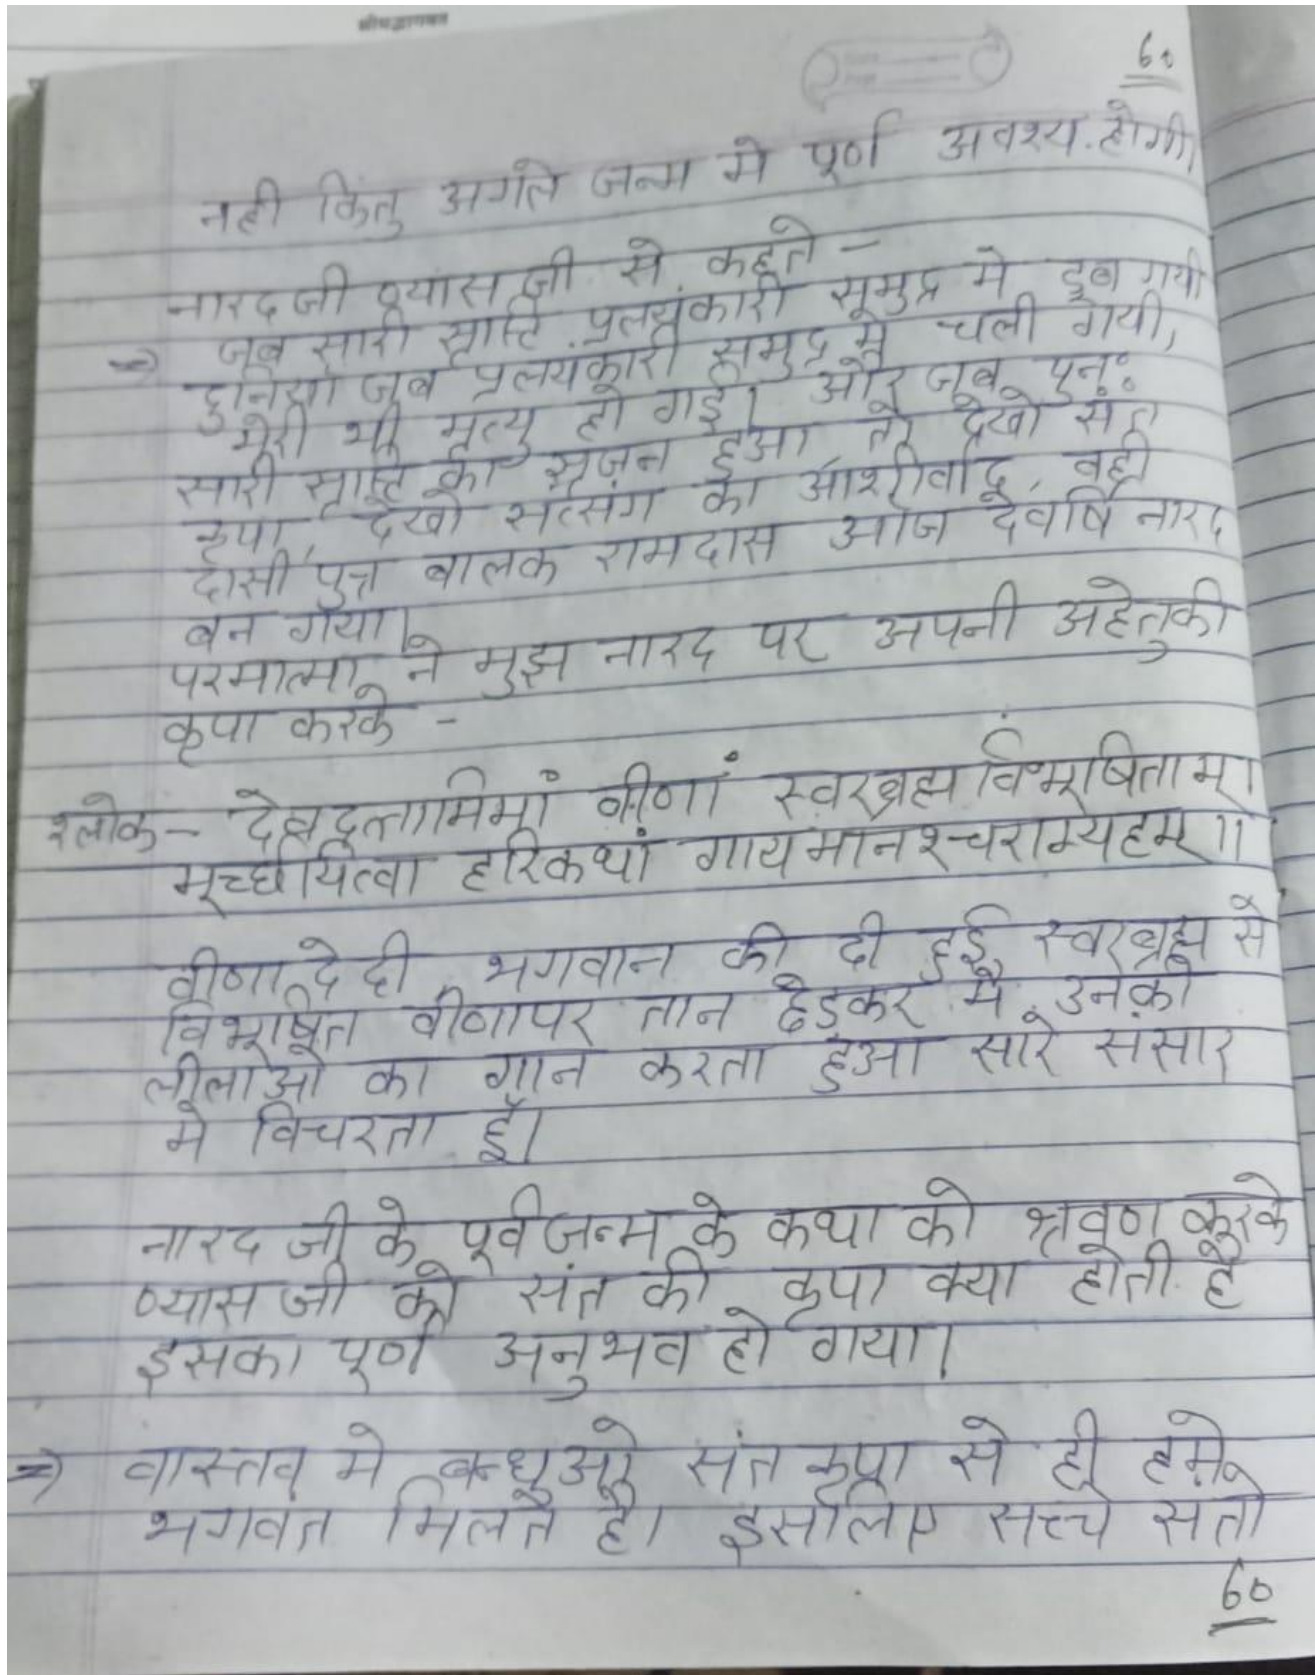 श्रीमद्भागवत
60
नही किंतु अगले जन्म मे पूर्ण अवश्य होगी।
नारद जी व्यास जी से कहते -
→ जब सारी सृष्टि प्रलयंकारी समुद्र मे डूब गयी
दुनिया जब प्रलयकारी समुद्र मे चली गयी,
मेरी भी मृत्यु हो गई। और जब पुनः
सारी सृष्टि का सृजन हुआ तो देखो संत
कृपा, देखो सत्संग का आशीर्वाद, वही
दासी पुत्र बालक रामदास आज देवर्षि नारद
बन गया।
परमात्मा ने मुझ नारद पर अपनी अहेतुकी
कृपा करके -
श्लोक - देवदत्तामिमां वीणां स्वरब्रह्मविभूषिताम्।
मूर्च्छयित्वा हरिकथां गायमानश्चराम्यहम्॥
वीणा दे दी, भगवान की दी हुई स्वरब्रह्म से
विभूषित वीणापर तान छेड़कर मै उनकी
लीलाओ का गान करता हुआ सारे संसार
मे विचरता हूँ।
नारद जी के पूर्वजन्म के कथा को श्रवण करके
व्यास जी को संत की कृपा क्या होती है
इसका पूर्ण अनुभव हो गया।
→ वास्तव मे बन्धुओ संत कृपा से ही हमे
भगवंत मिलते है। इसलिए सच्चे संतो
60